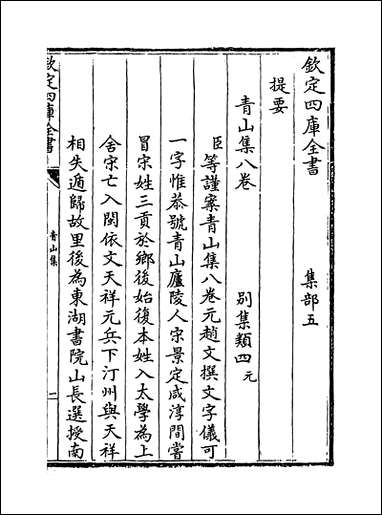 欽定四庫全書 集部五
提要
青山集八卷 別集類四元
臣等謹案青山集八卷元趙文撰文字儀可
一字惟恭號青山廬陵人宋景定咸淳間嘗
冒宋姓三貢於鄉後始復本姓入太學為上
舍宋亡入閩依文天祥元兵下汀州與天祥
相失遁歸故里後為東湖書院山長選授南
欽定四庫全書
青山集
二